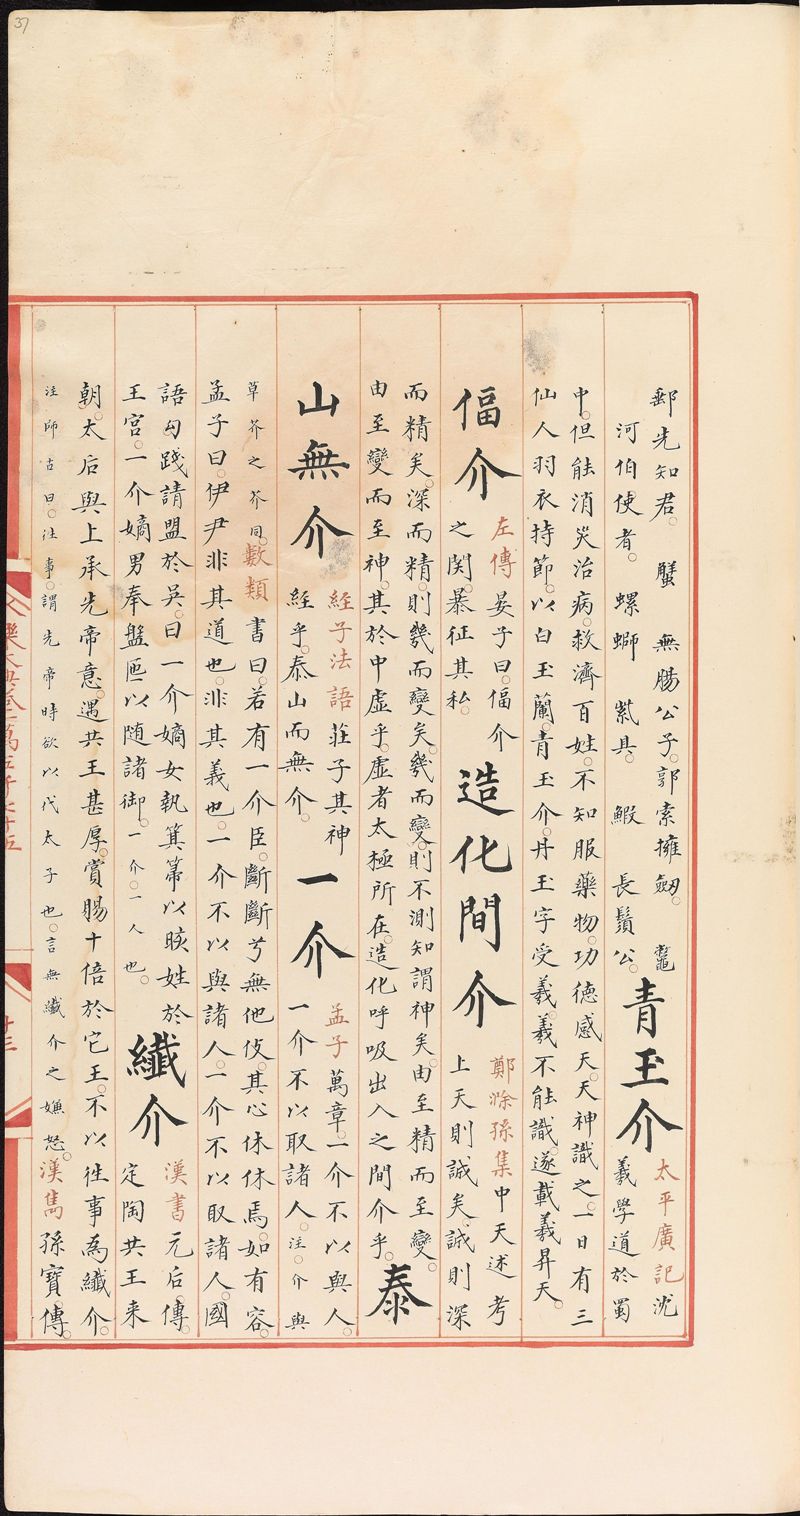 郵先知君。 蟹 無腸公子。郭索擁劒。 鼈
河伯使者。 螺螄 紫具。 鰕 長鬚公。
青玉介
太平廣記沈
羲學道於蜀
中。但能消災治病。救濟百姓。不知服藥物。功德感天。天神識之。一日有三
仙人羽衣持節。以白玉蘭。青玉介。丹玉字受羲。羲不能識。遂載羲昇天。
偪介
左傳晏子曰。偪介
之関。暴征其私。
造化間介
鄭滁孫集中天述考
上天則誠矣。誠則深
而精矣。深而精。則幾而變矣。幾而變。則不測知謂神矣。由至精而至變。
由至變而至神。其於中虛乎。虛者太極所在。造化呼吸出入之間介乎。
泰
山無介
經子法語莊子其神
經乎。泰山而無介。
一介
孟子萬章。一介不以與人。
一介不以取諸人。注。介與
草芥之芥同。數類書曰。若有一介臣。斷斷兮無他伎。其心休休焉。如有容。
孟子曰。伊尹非其道也。非其義也。一介不以與諸人。一介不以取諸人。國
語勾踐請盟於吳。曰一介嫡女執箕箒以晐姓於
王宮。一介嫡男奉盤匜以随諸御。一介。一人也。
纖介
漢書元后傳。
定陶共王来
朝。太后與上承先帝意。遇共王甚厚。賞賜十倍於它王。不以往事為纖介。
注師古曰。往事。謂先帝時欲以代太子也。言無纖介之嫌怒。漢雋孫寶傳。
37